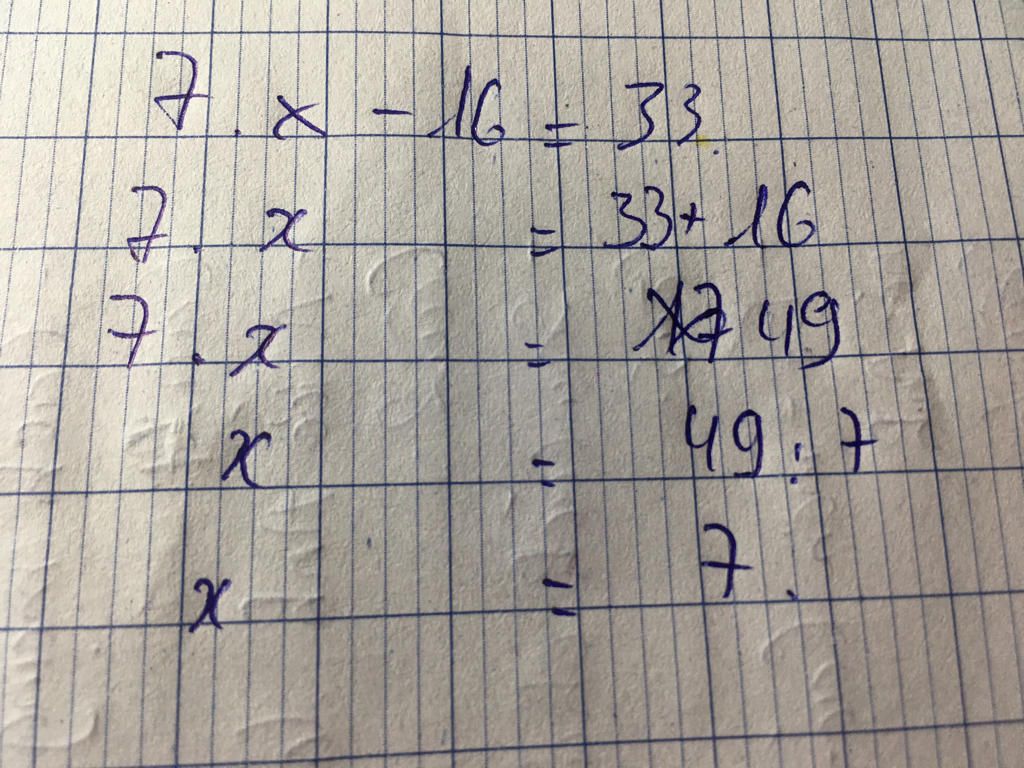 7 . x - 16 = 33.
7 . x = 33 + 16
7 . x = 49
x = 49 : 7
x = 7.